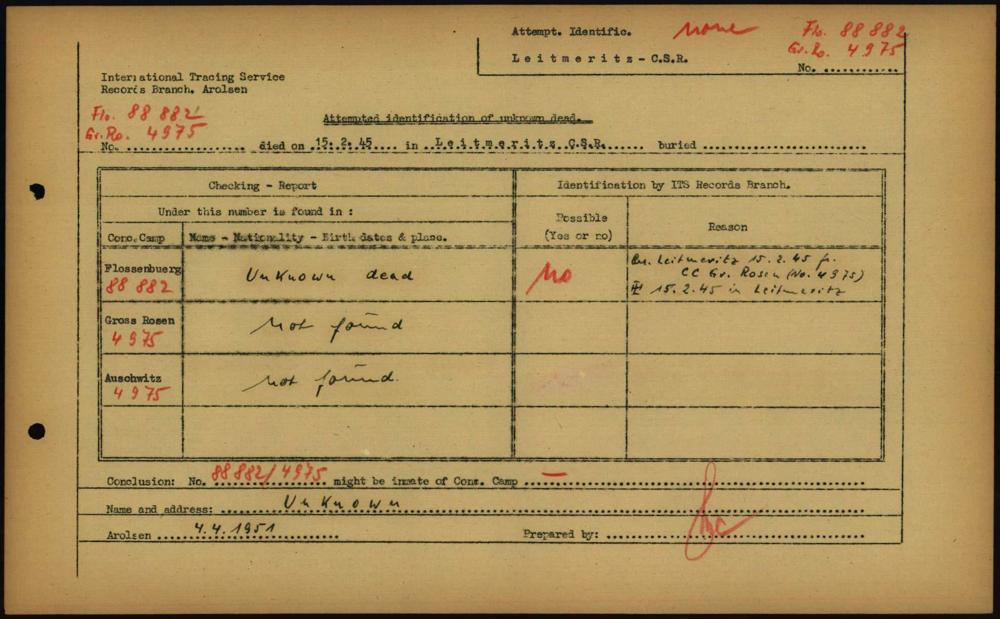 Attempt. Identific. none Flo. 88 882
Gr.Ro. 4975
Leitmeritz - C.S.R.
No. ............
International Tracing Service
Records Branch, Arolsen
Flo. 88 882
Gr.Ro. 4975
Attempted identification of unknown dead.
No. .................. died on 15. 2. 45 .... in .. Leitmeritz C.S.R. ...... buried .........................
Checking - Report Identification by ITS Records Branch.
Under this number is found in :
Possible
(Yes or no) Reason
Conc. Camp Name - Nationality - Birth dates & place.
Flossenbuerg
88 882 Unknown dead No Leitmeritz 15.2.45 fr.
CC Gr. Rosen (No. 4975)
15.2.45 in Leitmeritz
Gross Rosen
4975 not found
Auschwitz
4975 not found.
Conclusion: No. 88 882/4975 might be inmate of Conc. Camp —
Name and address: Unknown
Arolsen 4.4.1951 Prepared by: